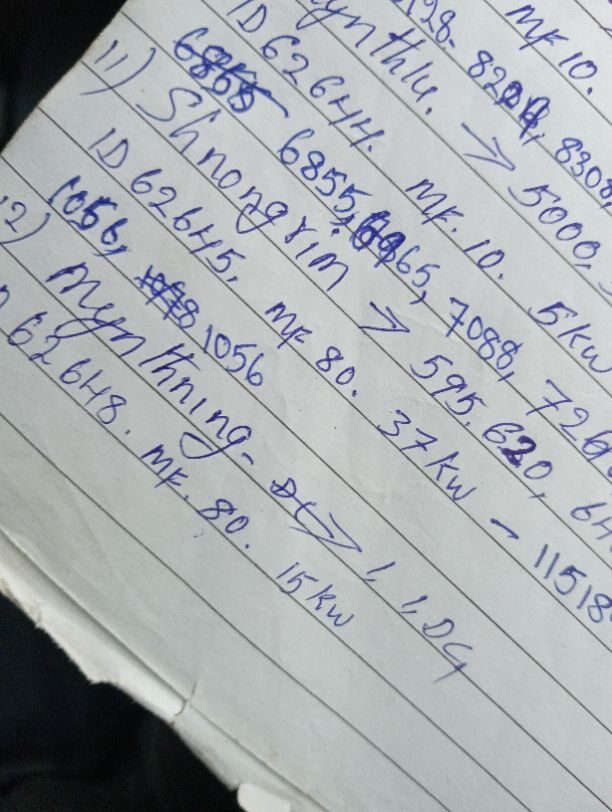 MF 10.
8308,
Mynthlu. → 5000,
ID 62644. MF. 10. 5kw
6855, 6965, 7088,
11) Shnongrim → 595, 620,
ID 62645, MF 80. 37kw - 11518
1056, 1056
2) Mynthning - DC → 1, 1, DG
62648. MF. 80. 15kw